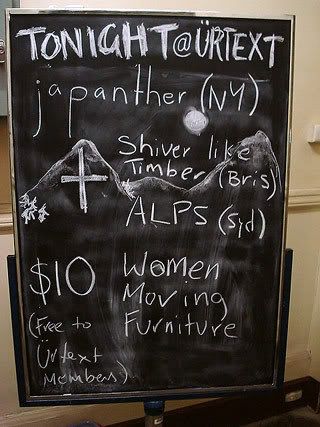 TONIGHT@ÜRTEXT
japanther (NY)
+ Shiver like
Timber (Bris)
ALPS (Syd)
$10 Women
Moving
(Free to Furniture
Ürtext
Members)